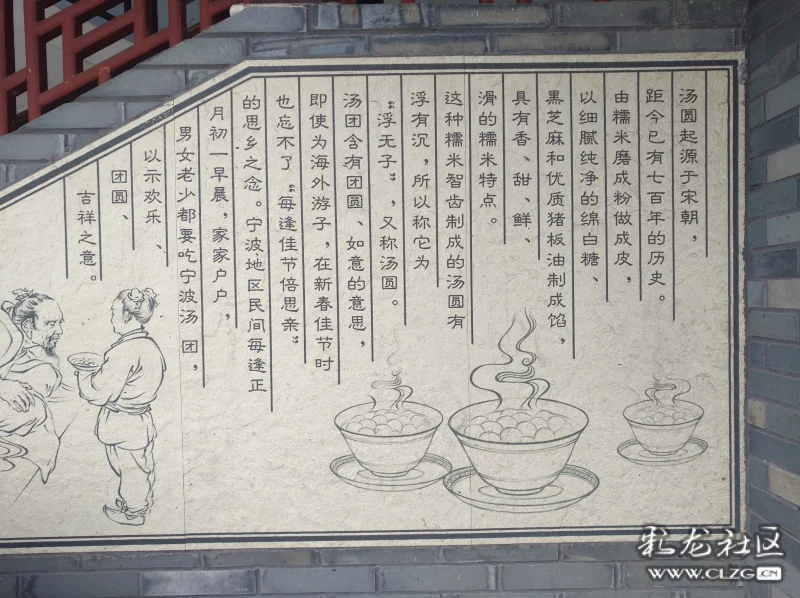 汤圆起源于宋朝，
距今已有七百年的历史。
由糯米磨成粉做成皮，
以细腻纯净的绵白糖、
黑芝麻和优质猪板油制成馅，
具有香、甜、鲜、
滑的糯米特点。
这种糯米智齿制成的汤圆有
浮有沉，所以称它为
“浮无子”，又称汤圆。
汤团含有团圆、如意的意思，
即使为海外游子，在新春佳节时
也忘不了“每逢佳节倍思亲”
的思乡之念。宁波地区民间每逢正
月初一早晨，家家户户，
男女老少都要吃宁波汤团，
以示欢乐、
团圆、
吉祥之意。
彩龙社区
WWW.CLZG.CN